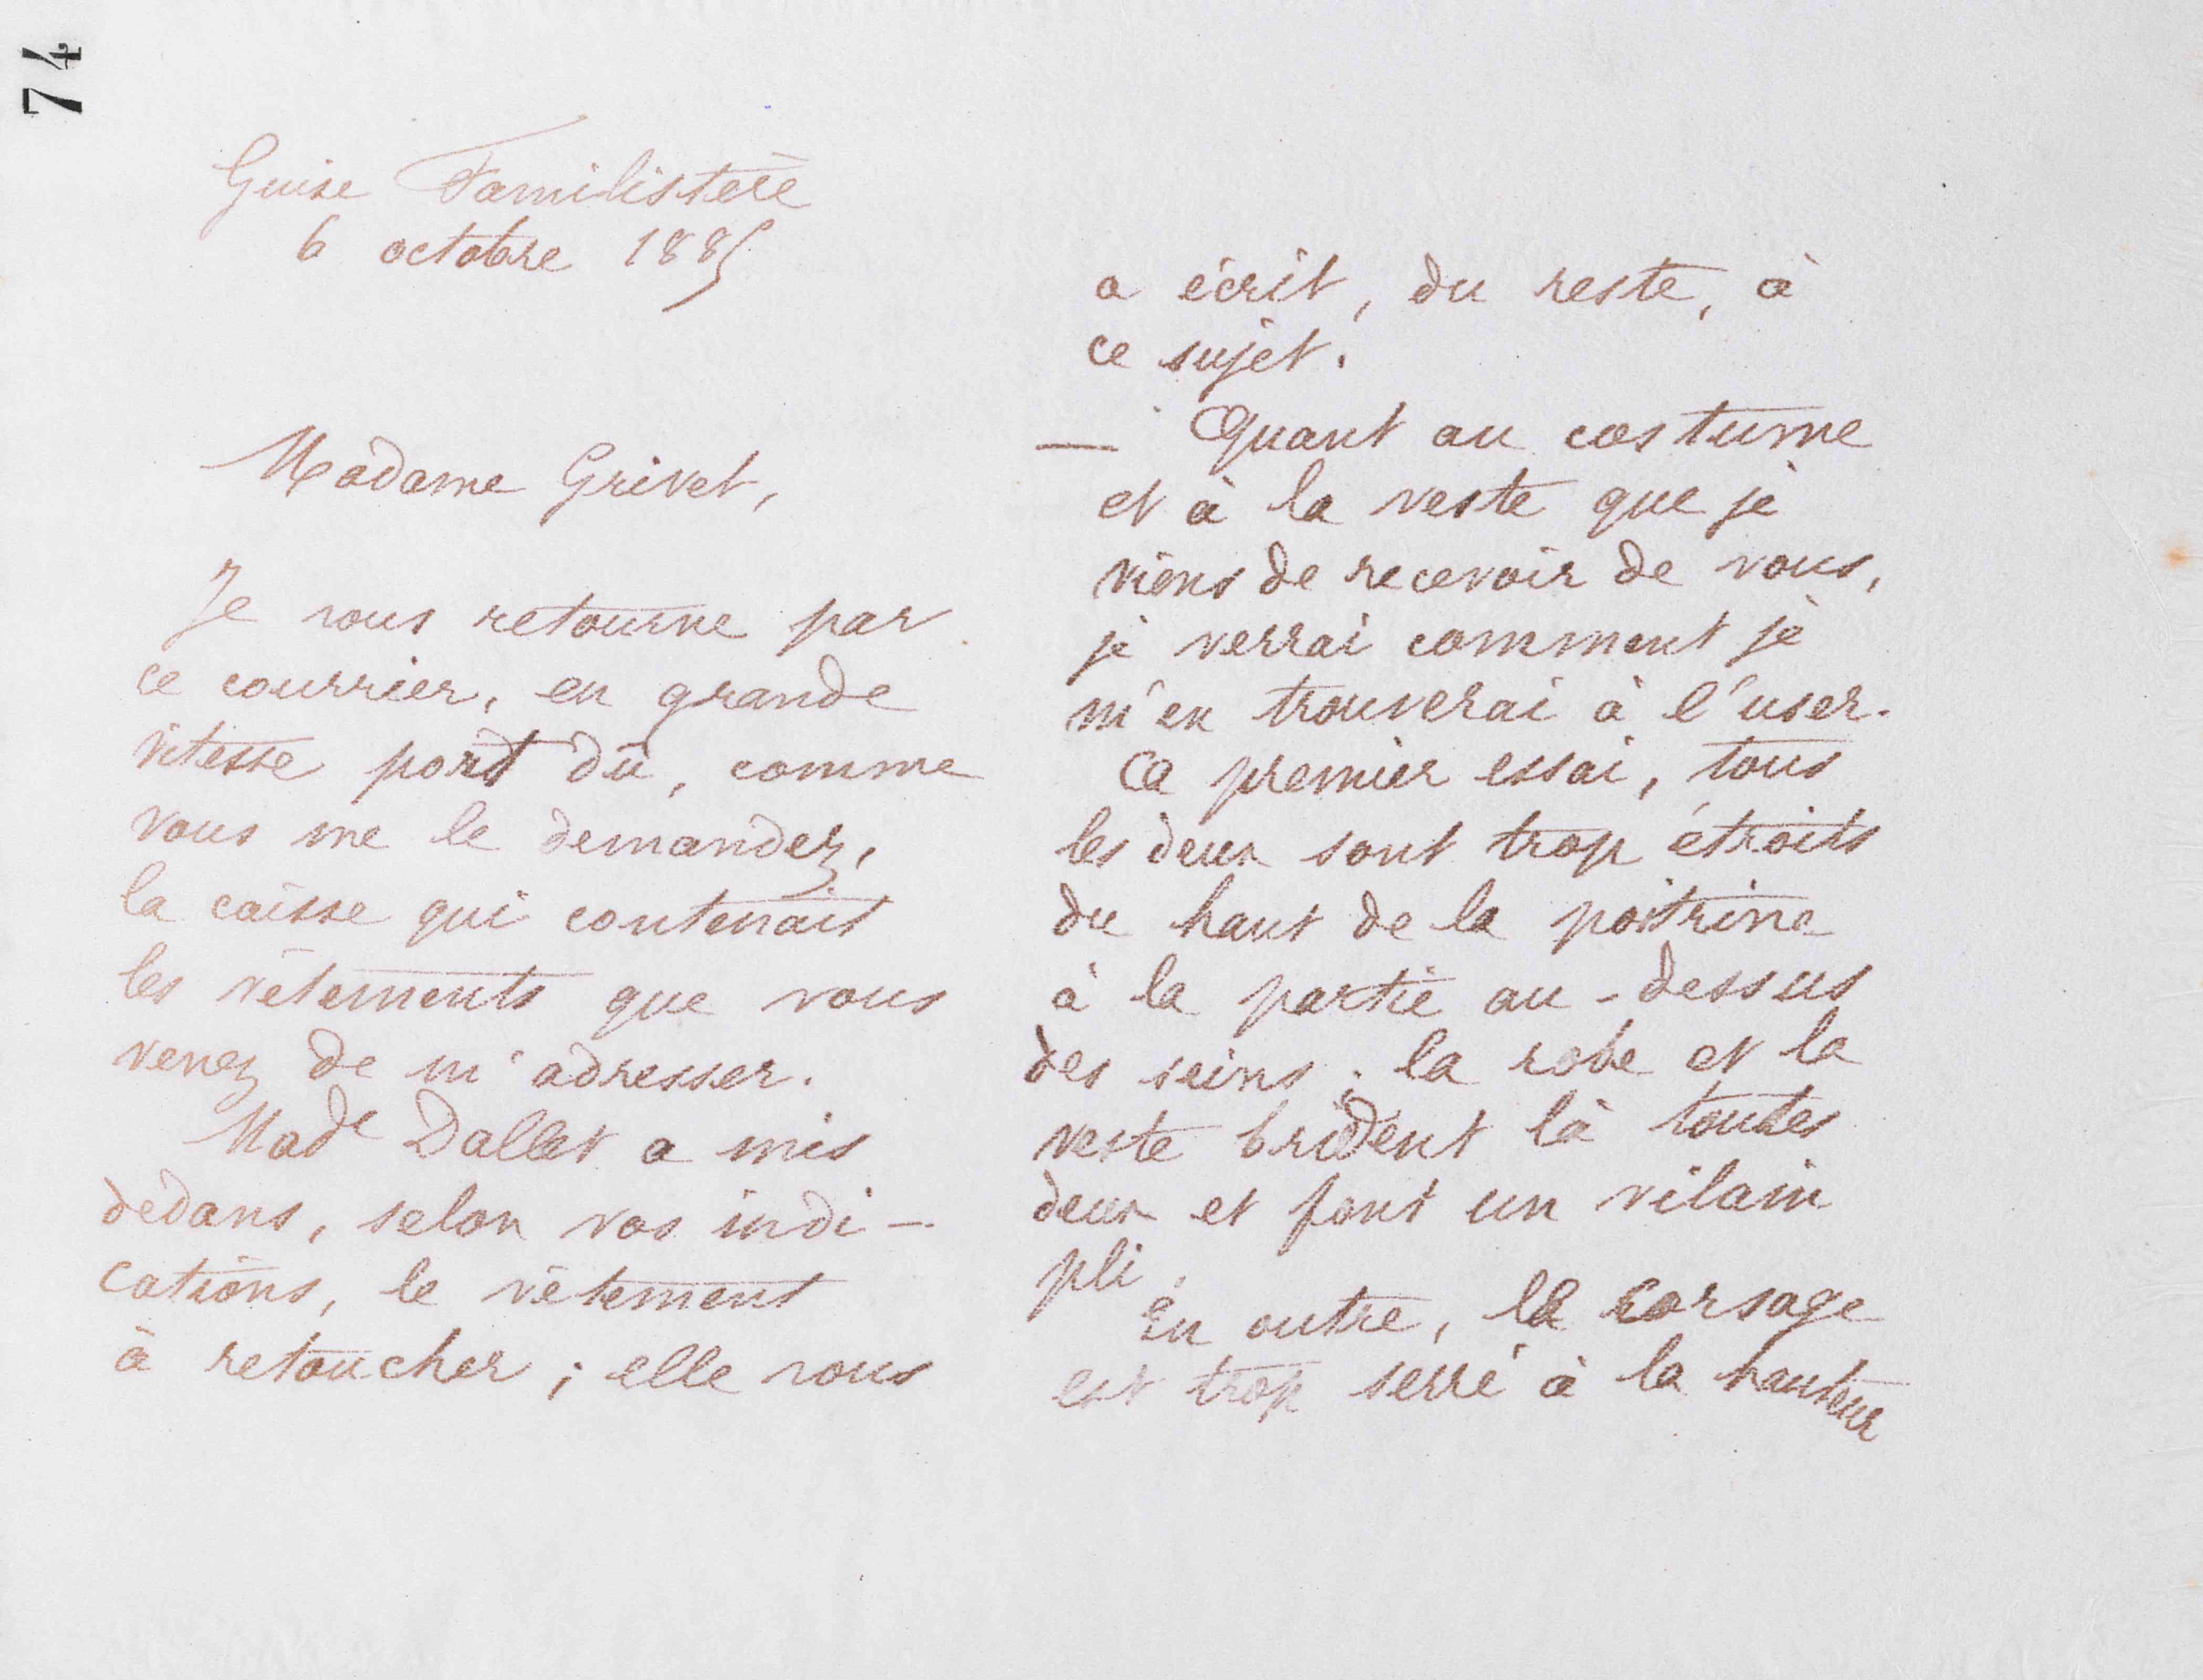 74
Guise Familistère
6 octobre 1885
Madame Grivet,
Je vous retourne par
ce courrier, en grande
vitesse port dû, comme
vous me le demandez,
la caisse qui contenait
les vêtements que vous
venez de m'adresser.
Made Dallet a mis
dedans, selon vos indi-
cations, le vêtement
à retoucher ; elle vous
a écrit, du reste, à
ce sujet.
— Quant au costume
et à la veste que je
viens de recevoir de vous,
je verrai comment je
m'en trouverai à l'user.
Ce premier essai, tous
les deux sont trop étroits
du haut de la poitrine
à la partie au-dessus
des seins ; la robe et la
veste brident là toutes
deux et font un vilain
pli.
En outre, le corsage
est trop serré à la hauteur